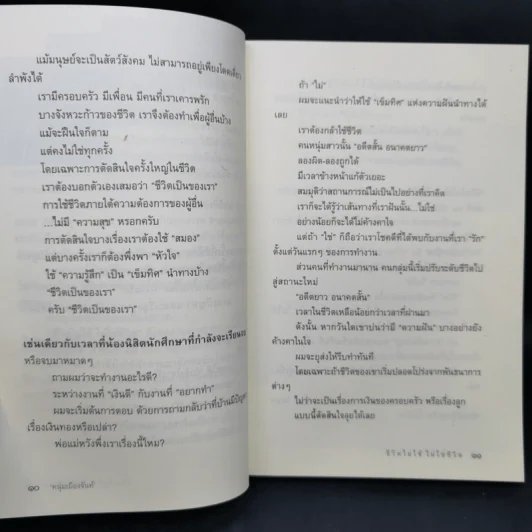 แม้มนุษย์จะเป็นสัตว์สังคม ไม่สามารถอยู่เพียงโดดเดี่ยว
ลำพังได้
เรามีครอบครัว มีเพื่อน มีคนที่เราเคารพรัก
บางจังหวะก้าวของชีวิต เราจึงต้องทำเพื่อผู้อื่นบ้าง
แม้จะฝืนใจก็ตาม
แต่คงไม่ใช่ทุกครั้ง
โดยเฉพาะการตัดสินใจครั้งใหญ่ในชีวิต
เราต้องบอกตัวเองเสมอว่า "ชีวิตเป็นของเรา"
การใช้ชีวิตภายใต้ความต้องการของผู้อื่น
...ไม่มี "ความสุข" หรอกครับ
การตัดสินใจบางเรื่องเราต้องใช้ "สมอง"
แต่บางครั้งเราก็ต้องพึ่งพา "หัวใจ"
ใช้ "ความรู้สึก" เป็น "เข็มทิศ" นำทางบ้าง
"ชีวิตเป็นของเรา"
ครับ "ชีวิตเป็นของเรา"
เช่นเดียวกับเวลาที่น้องนิสิตนักศึกษาที่กำลังจะเรียนจบ
หรือจบมาหมาดๆ
ถามผมว่าจะทำงานอะไรดี?
ระหว่างงานที่ "เงินดี" กับงานที่ "อยากทำ"
ผมจะเริ่มต้นการตอบ ด้วยการถามกลับว่าที่บ้านมีปัญหา
เรื่องเงินทองหรือเปล่า?
พ่อแม่หวังพึ่งเราเรื่องนี้ไหม?
๑๐ หนุ่มเมืองจันท์
ถ้า "ไม่"
ผมจะแนะนำว่าให้ใช้ "เข็มทิศ" แห่งความฝันนำทางได้
เลย
เราต้องกล้าใช้ชีวิต
คนหนุ่มสาวนั้น "อดีตสั้น อนาคตยาว"
ลองผิด-ลองถูกได้
มีเวลาข้างหน้าแก้ตัวเยอะ
สมมุติว่าสถานการณ์ไม่เป็นไปอย่างที่เราคิด
เราก็จะได้รู้ว่าเส้นทางที่เราฝันนั้น...ไม่ใช่
อย่างน้อยก็จะได้ไม่ค้างคาใจ
แต่ถ้า "ใช่" ก็ถือว่าเราโชคดีที่ได้พบกับงานที่เรา "รัก"
ตั้งแต่วันแรกๆ ของการทำงาน
ส่วนคนที่ทำงานมานาน คนกลุ่มนี้เริ่มปรับระดับชีวิตไป
สู่สถานะใหม่
"อดีตยาว อนาคตสั้น"
เวลาในชีวิตเหลือน้อยกว่าเวลาที่ผ่านมา
ดังนั้น หากวันใดเขาบ่นว่ามี "ความฝัน" บางอย่างยัง
ค้างคาในใจ
ผมจะยุส่งให้รีบทำทันที
โดยเฉพาะถ้าชีวิตของเขาเริ่มปลอดโปร่งจากพันธนาการ
ต่างๆ
ไม่ว่าจะเป็นเรื่องการเงินของครอบครัว หรือเรื่องลูก
แบบนี้ตัดสินใจลุยให้เลย
ชีวิตไม่ใช้ ไม่ใช่ชีวิต ๑๑